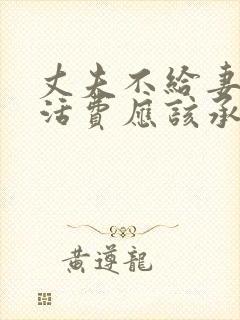 丈夫不給妻
活費應該承
黃遵龍